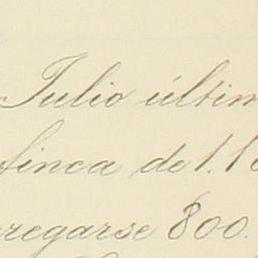 Julio últim
finca de 1.1
regarse 800.